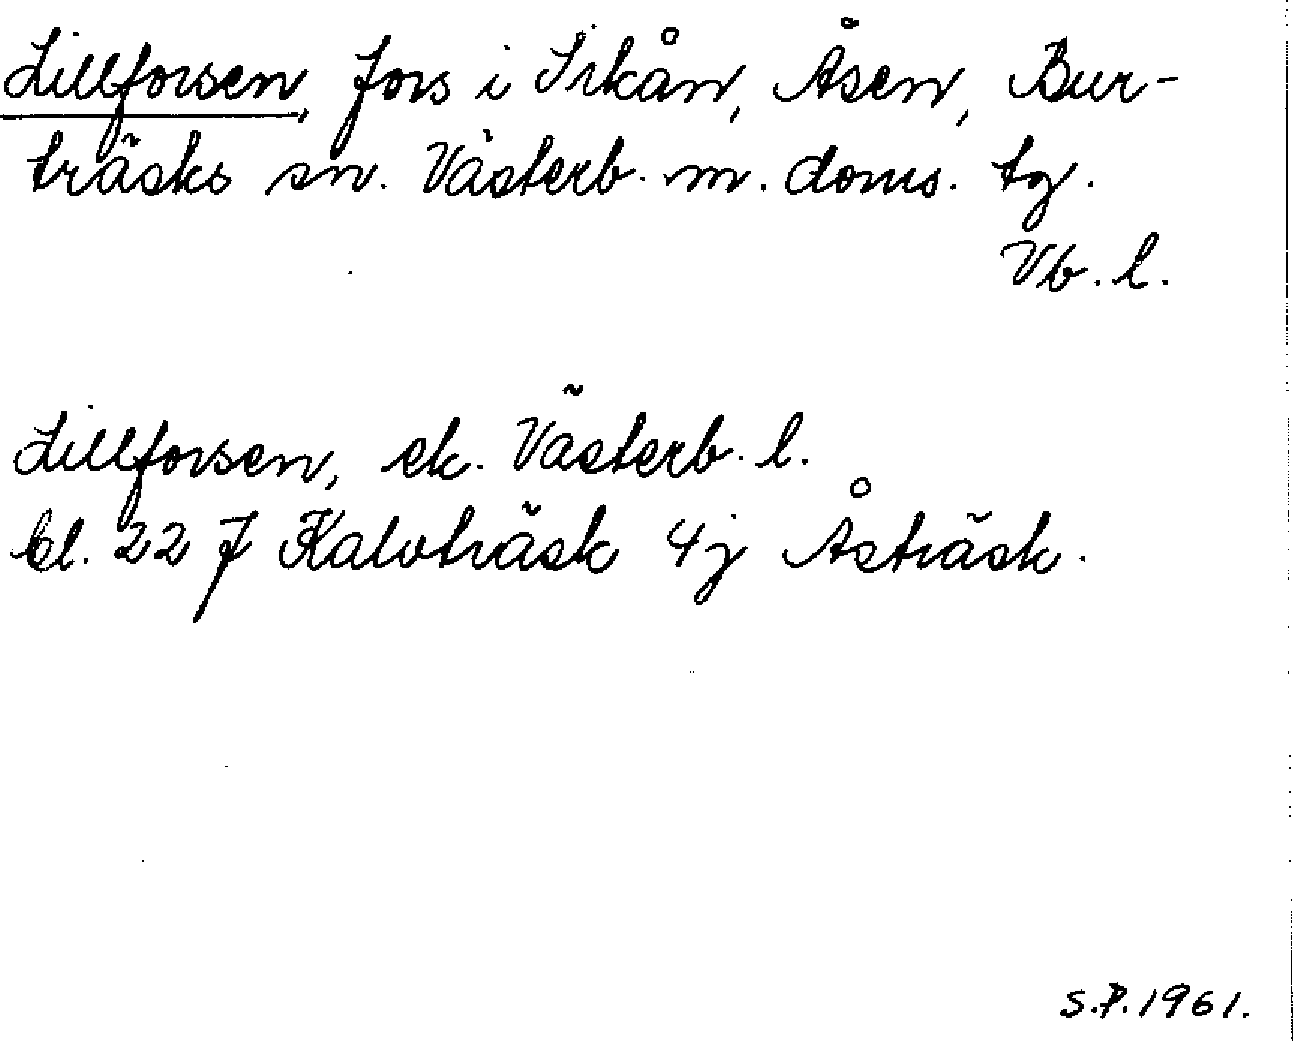 Lillforsen, fors i Irkån, Åsen, Bur-
träsks sn. Västerb. m. doms. tg.
Vb. l.
Lillforsen, ek. Västerb. l.
bl. 22 J Kalvträsk 4j Åsträsk.
S.P. 1961.